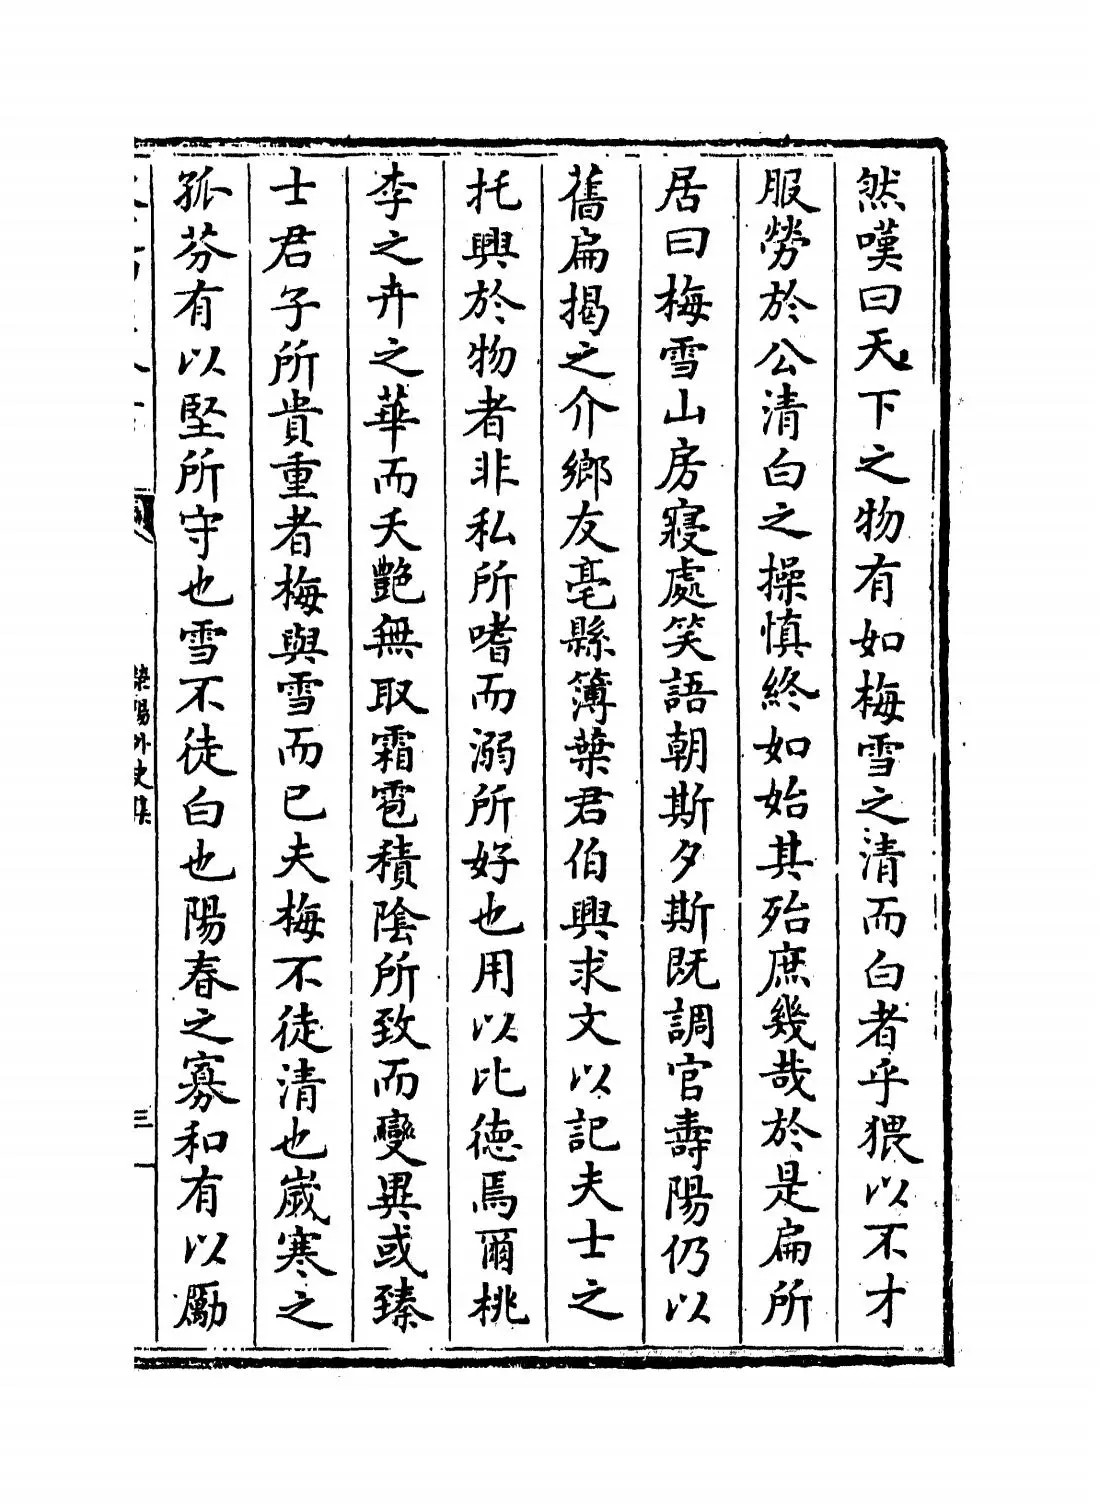 然嘆曰天下之物有如梅雪之清而白者乎猥以不才
服勞於公清白之操慎終如始其殆庶幾哉於是扁所
居曰梅雪山房寢處笑語朝斯夕斯既調官壽陽仍以
舊扁揭之介鄉友亳縣簿葉君伯興求文以記夫士之
托興於物者非私所嗜而溺所好也用以比徳焉爾桃
李之卉之華而夭艷無取霜雹積陰所致而變異或臻
士君子所貴重者梅與雪而已夫梅不徒清也歲寒之
孤芬有以堅所守也雪不徒白也陽春之寡和有以勵
滎陽外史集
三